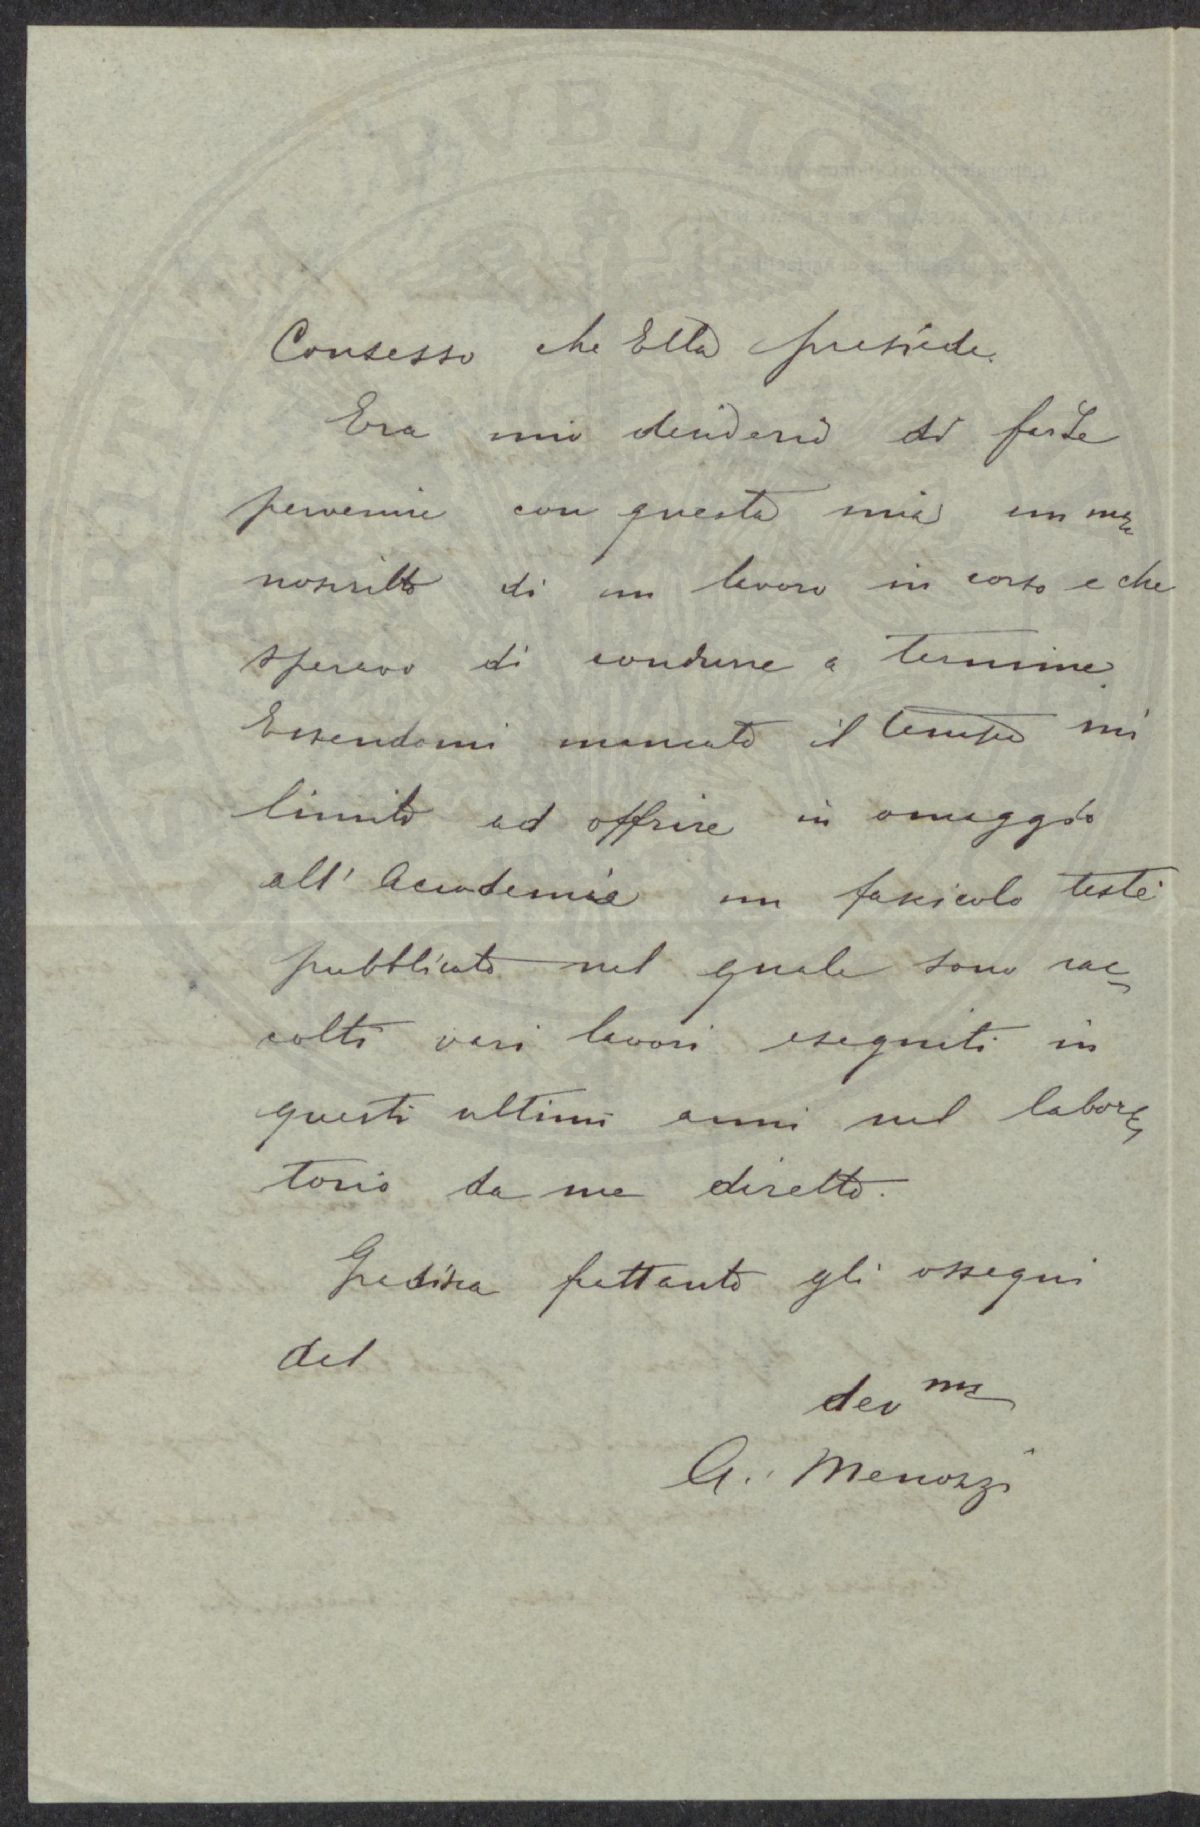 Consesso che Ella presiede.
Era mio desiderio di farLe
pervenire con questa mia un ma-
noscritto di un lavoro in corso e che
speravo di condurre a termine.
Essendomi mancato il tempo mi
limito ad offrire in omaggio
all'Accademia un fascicolo testé
pubblicato nel quale sono rac-
colti vari lavori eseguiti in
questi ultimi anni nel labora-
torio da me diretto.
Gradisca frattanto gli ossequi
del
dev mo
A. Menozzi